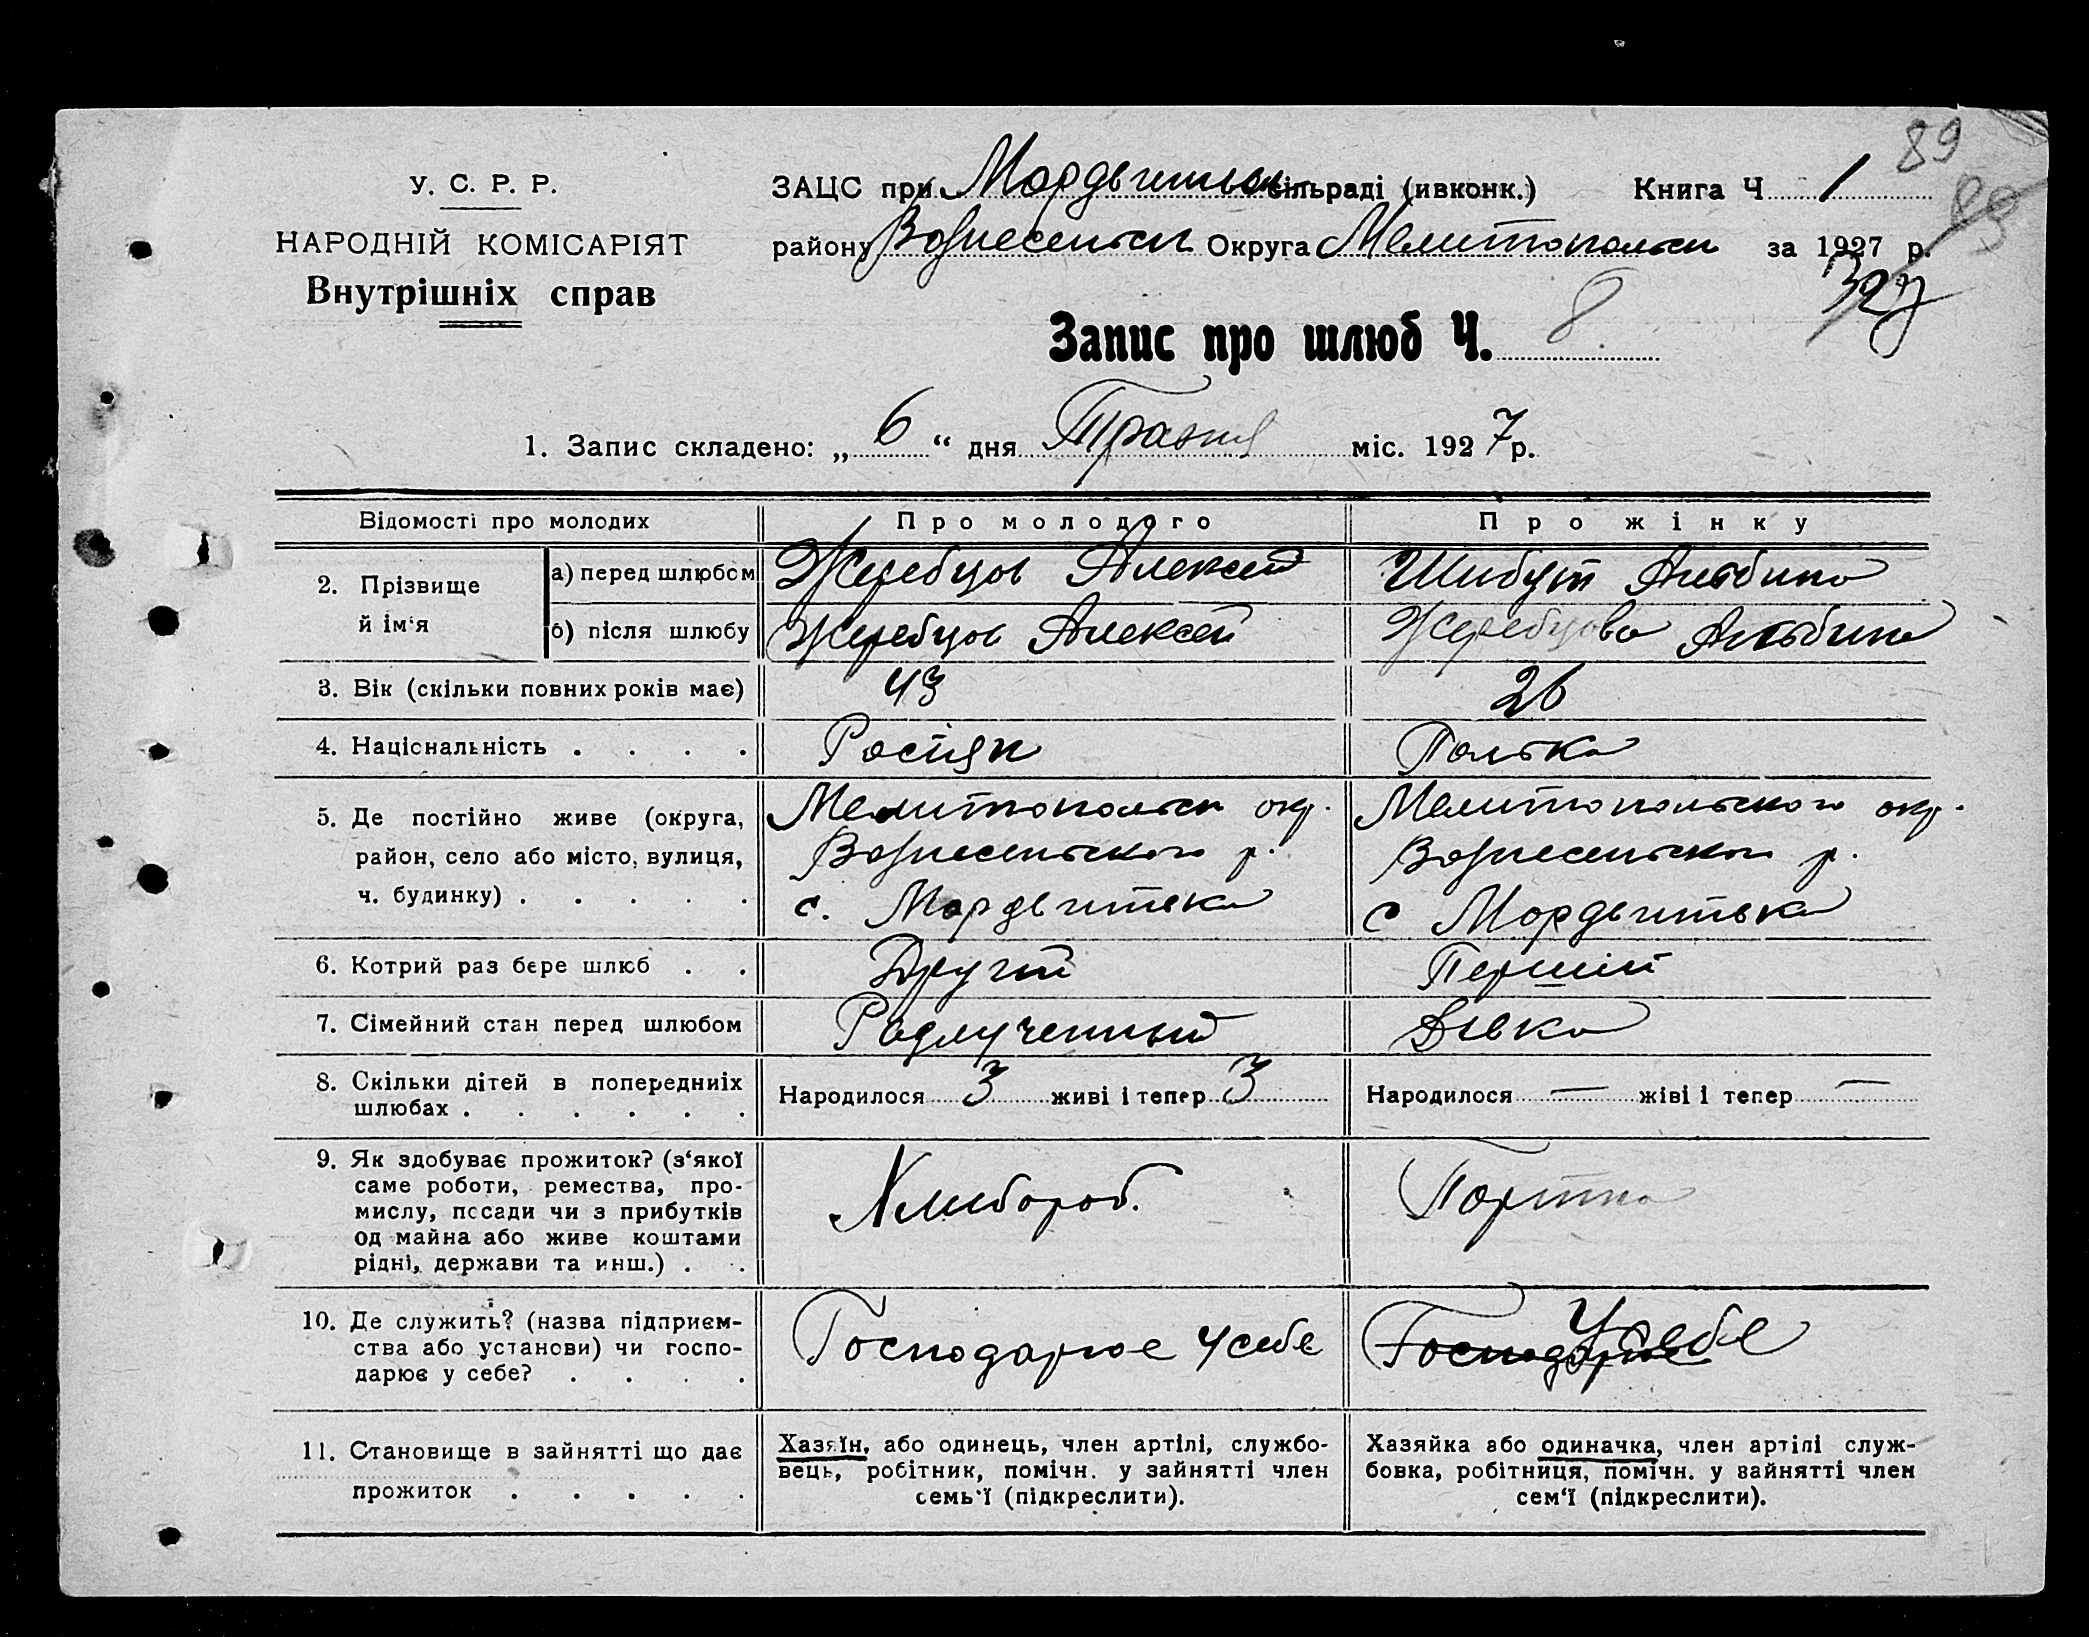 89
У. С. Р. Р.
НАРОДНІЙ КОМІСАРІЯТ
Внутрішніх справ
ЗАЦС при сільраді (ивконк.) Книга Ч 1
району Вознесенськ Округа Мелитопольск за 1927 р.
Запис про шлюб Ч. 8
1. Запис складено: „ 6 “ дня Травня міс. 1927 р.
Відомості про молодих Про молодого Про жінку
2. Прізвище й ім'я
а) перед шлюбом Жеребцов Алексей Шибут Альбина
б) після шлюбу Жеребцов Алексей Жеребцова Альбина
3. Вік (скільки повних років має) 43 26
4. Національність . . . . Росіян Полька
5. Де постійно живе (округа, район, село або місто, вулиця, ч. будинку) . . . . .
Мелитопольск окр. Мелитопольского окр.
Вознесенского р. Вознесенского р.
с. Мордвинівка с Мордвинівка
6. Котрий раз бере шлюб . . Другий Перший
7. Сімейний стан перед шлюбом Разлученный Дівка
8. Скільки дітей в попередниіх шлюбах . . . . . .
Народилося 3 живі і тепер 3 Народилося — жіві і тепер —
9. Як здобуває прожиток? (з‘якої
саме роботи, ремества, про-
мислу, посади чи з прибутків
од майна або живе коштами
рідні, держави та инш.) . .
Хлибороб.
10. Де служить? (назва підприєм-
ства або установи) чи госпо-
дарює у себе? . . . .
Господарює у себе Господарює У себе
11. Становище в зайнятті що дає
прожиток . . . . .
Хазяїн, або одинець, член артілі, службо-
вець, робітник, помічн. у зайнятті член
семь'ї (підкреслити).
Хазяйка або одиначка, член артілі служ-
бовка, робітниця, помічн. у зайнятті член
сем‘ї (підкреслити).